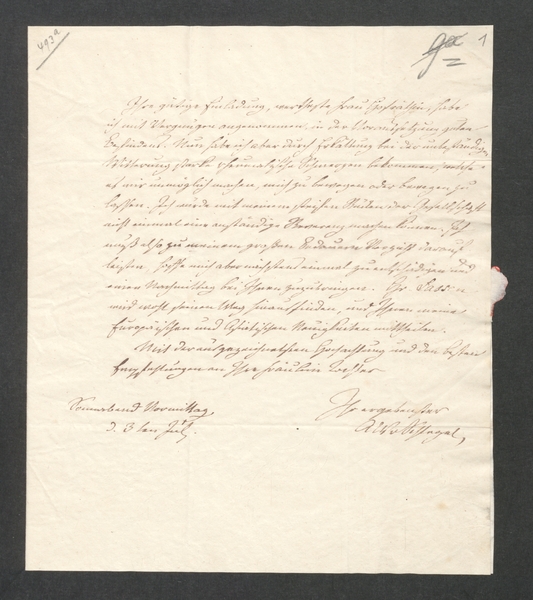 493a
1
Ihre gütige Einladung, verehrteste Frau Hofräthin, habe
ich mit Vergnügen angenommen, in der Voraussetzung guten
Befindens. Nun habe ich aber durch Erkältung bei der unbeständigen
Witterung starke rheumatische Schmerzen bekommen, welche
es mir unmöglich machen, mich zu bewegen oder bewegen zu
lassen. Ich würde mit meinem steifen Rücken der Gesellschaft
nicht einmal eine anständige Reverenz machen können. Ich
muß also zu meinem großen Bedauern Verzicht darauf
leisten, hoffe mich aber nächstens einmal zu entschädigen und
einen Nachmittag bei Ihnen zuzubringen. Hr. Lassen
wird wohl seinen Weg hinausfinden, und Ihnen meine
Europäischen und Asiatischen Neuigkeiten mittheilen.
Mit der ausgezeichnetsten Hochachtung und den besten
Empfehlungen an Ihre Fräulein Tochter
Ihr ergebenster
AWvSchlegel,
Sonnabend Vormittag
d. 3ten Jul.